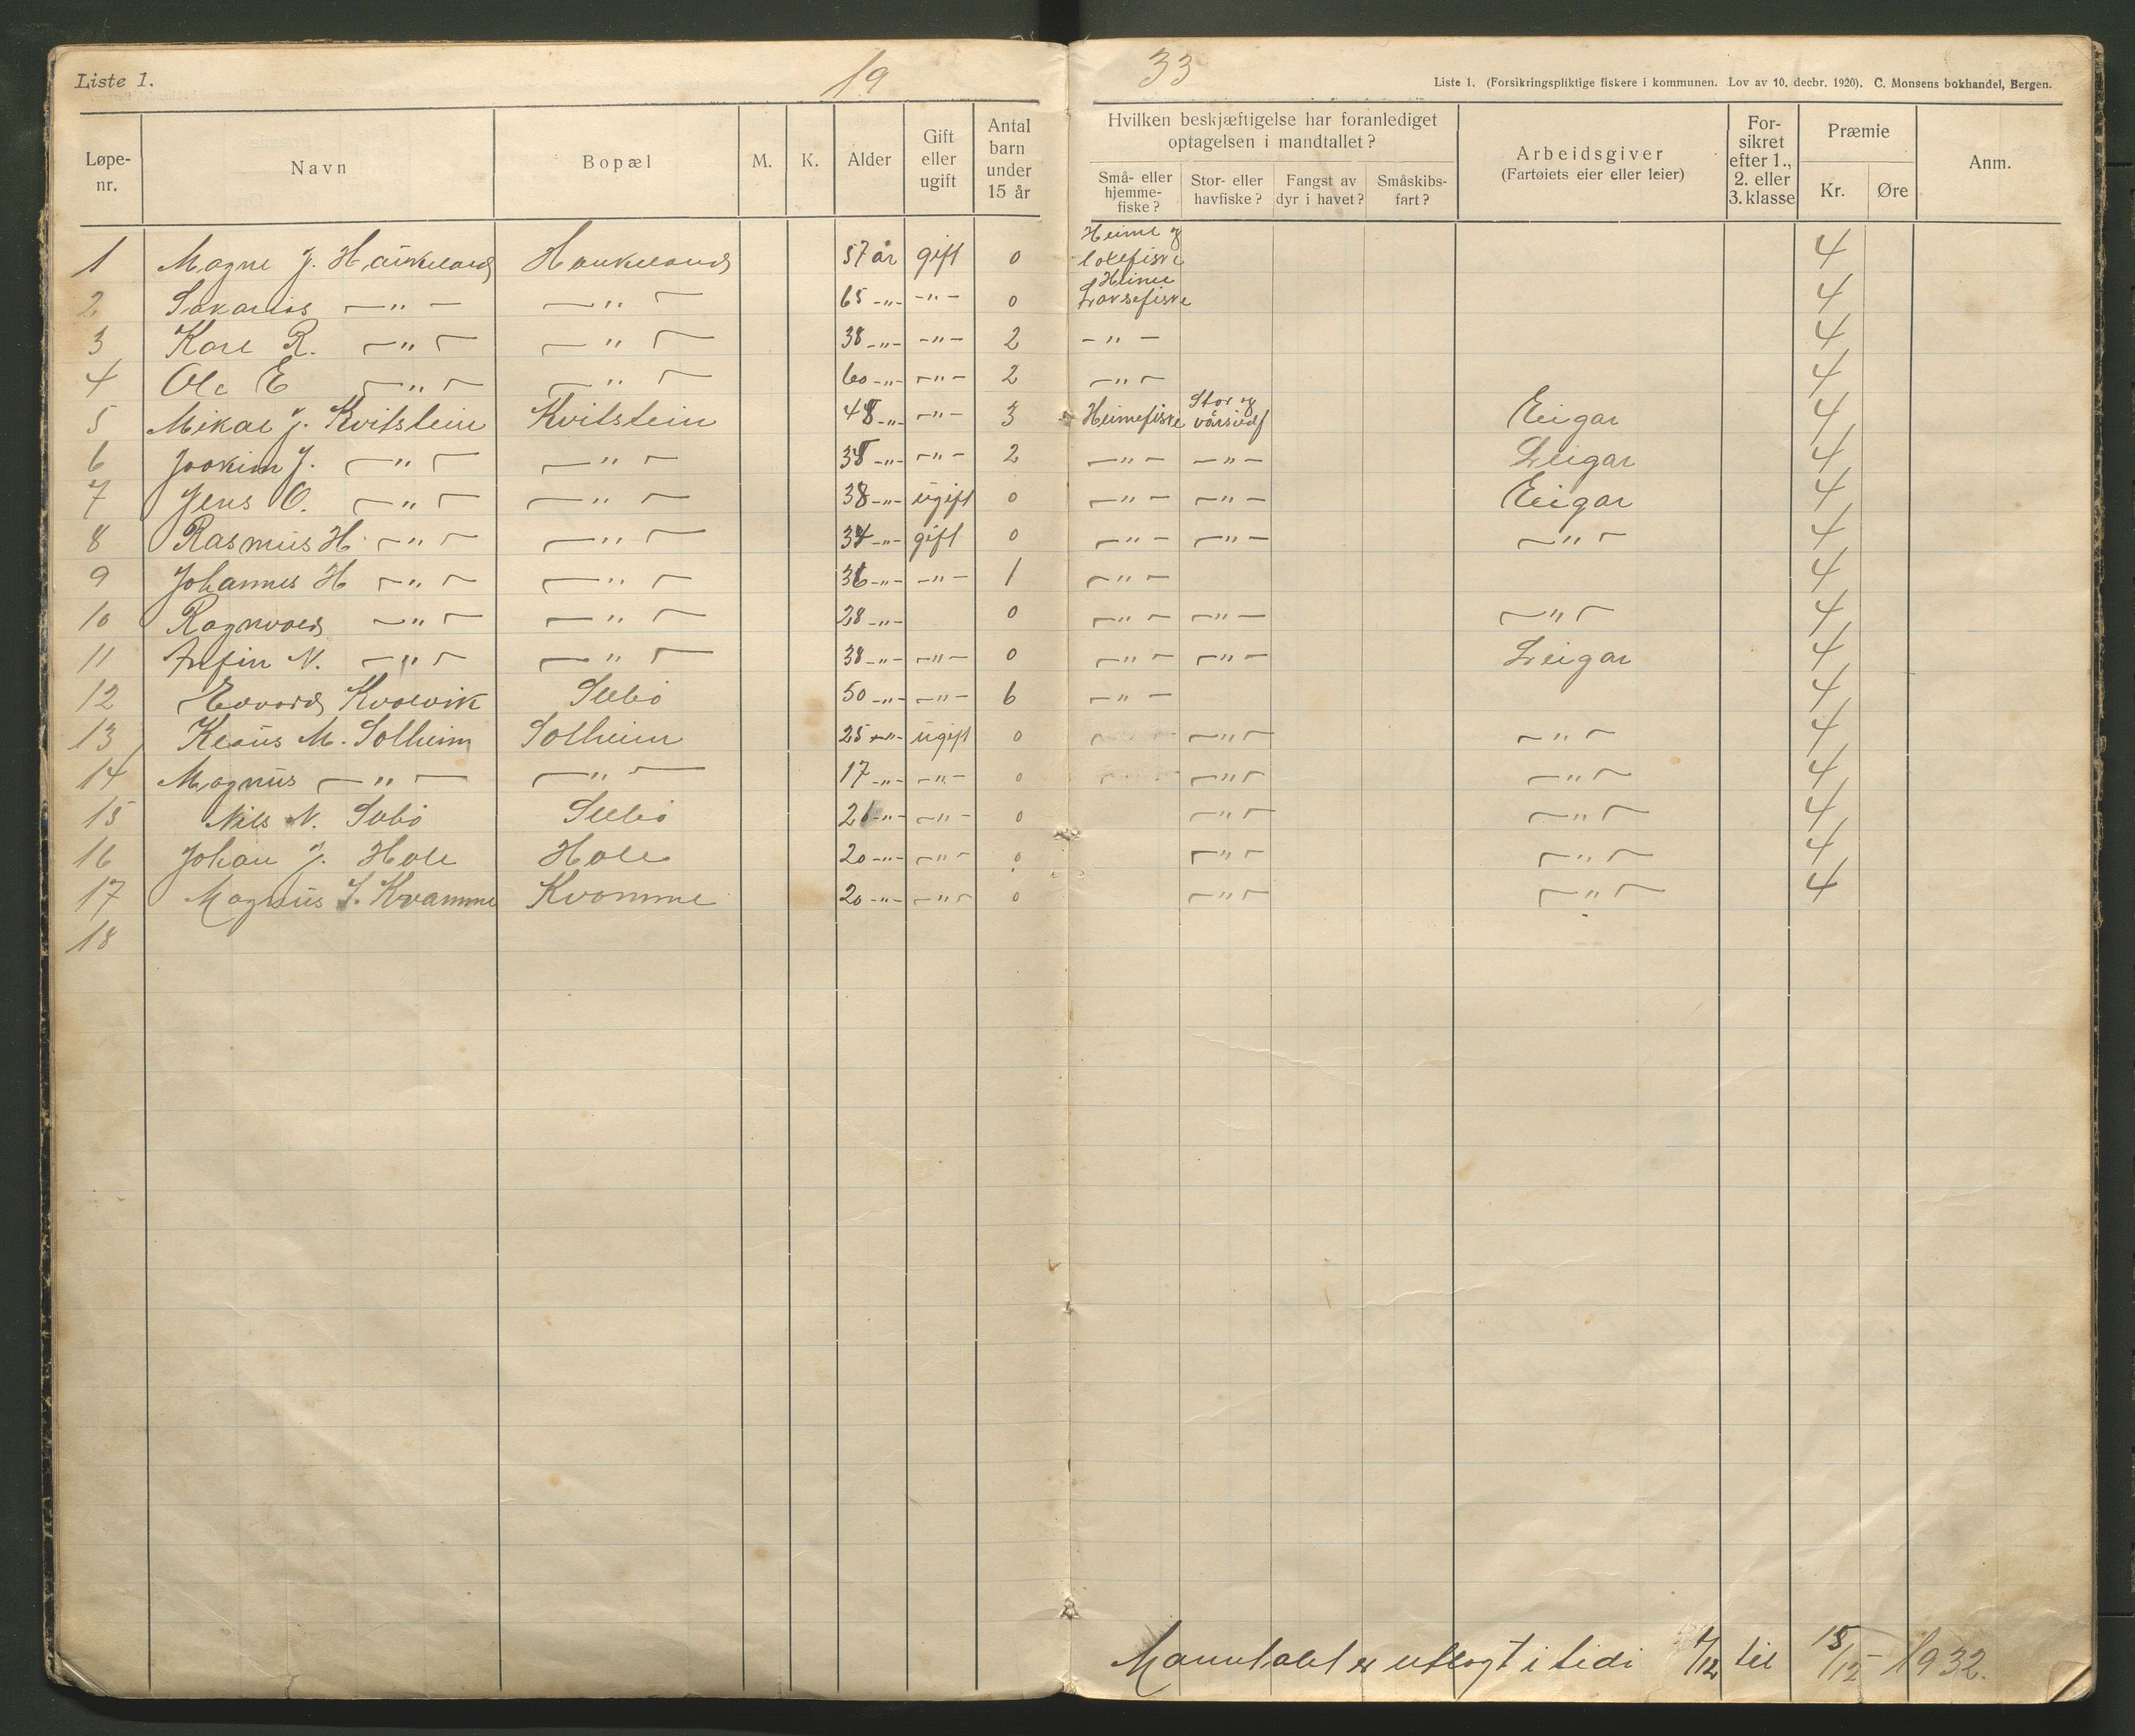 Liste 1. 19 33 Liste 1. (Forsikringspliktige fiskere i kommunen. Lov av 10. decbr. 1920). C. Monsens bokhandel, Bergen.
Løpe-nr. Navn Bopæl M. K. Alder Gift eller ugift Antal barn under 15 år Hvilken beskjæftigelse har foranlediget optagelsen i mandtallet? Små- eller hjemme-fiske? Stor- eller havfiske? Fangst av dyr i havet? Småskibs-fart? Arbeidsgiver (Fartøiets eier eller leier) For-sikret efter 1., 2. eller 3. klasse Præmie Kr. Øre Anm.
1 Magne J. Haukeland Haukeland 57 år gift 0 Heime og 4
2 Sakarias —"— —"— 65 -"- -"- 0 Heime Laksefiske 4
3 Karl R. —"— —"— 38 -"- -"- 2 -"- 4
4 Ole E —"— —"— 60 -"- -"- 2 —"— 4
5 Mikal J. Kvitstein Kvitstein 48 -"- -"- 3 Heimefiske Stor og vårsildf Eigar 4
6 Joakim J. —"— —"— 38 -"- -"- 2 —"— —"— Leigar 4
7 Jens O. —"— —"— 38 -"- ugift 0 —"— —"— Eigar 4
8 Rasmus H. —"— —"— 34 -"- gift 0 —"— —"— —"— 4
9 Johannes H —"— —"— 36 -"- -"- 1 —"— 4
10 Ragnvald —"— —"— 28 -"- 0 —"— —"— —"— 4
11 Arfin N. —"— —"— 38 -"- -"- 0 —"— —"— Leigar 4
12 Edvard Kvalvik Sæbø 50 -"- -"- 6 —"— 4
13 Klaus M. Solheim Solheim 25 -"- ugift 0 —"— —"— 4
14 Magnus —"— —"— 17 -"- -"- 0 —"— —"— 4
15 Nils N. Sæbø Sæbø -"- -"- 0 —"— —"— 4
16 Johan J. Hole Hole 20 -"- -"- 0 —"— —"— 4
17 Magnus J. Kvamme Kvamme 20 -"- -"- 0 —"— —"— 4
18
Manntalet er utlagt i tidi /12 til 15/12 1932.